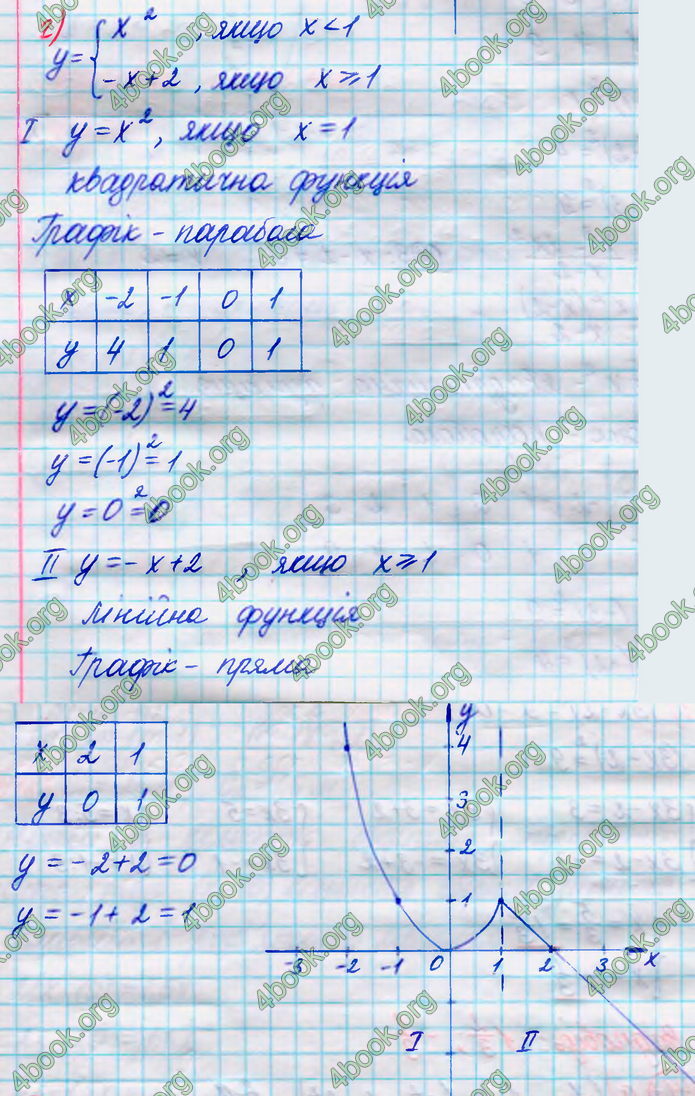 2)
y = { x², якщо x < 1
-x+2, якщо x ⩾ 1
I y = x², якщо x = 1
квадратична функція
Графік - парабола
x -2 -1 0 1
y 4 1 0 1
y = (-2)² = 4
y = (-1)² = 1
y = 0² = 0
II y = -x+2, якщо x ⩾ 1
лінійна функція
Графік - пряма
x 2 1
y 0 1
y = -2+2 = 0
y = -1+2 = 1
y
4
3
2
1
-3 -2 -1 0 1 2 3 x
I II
4book.org